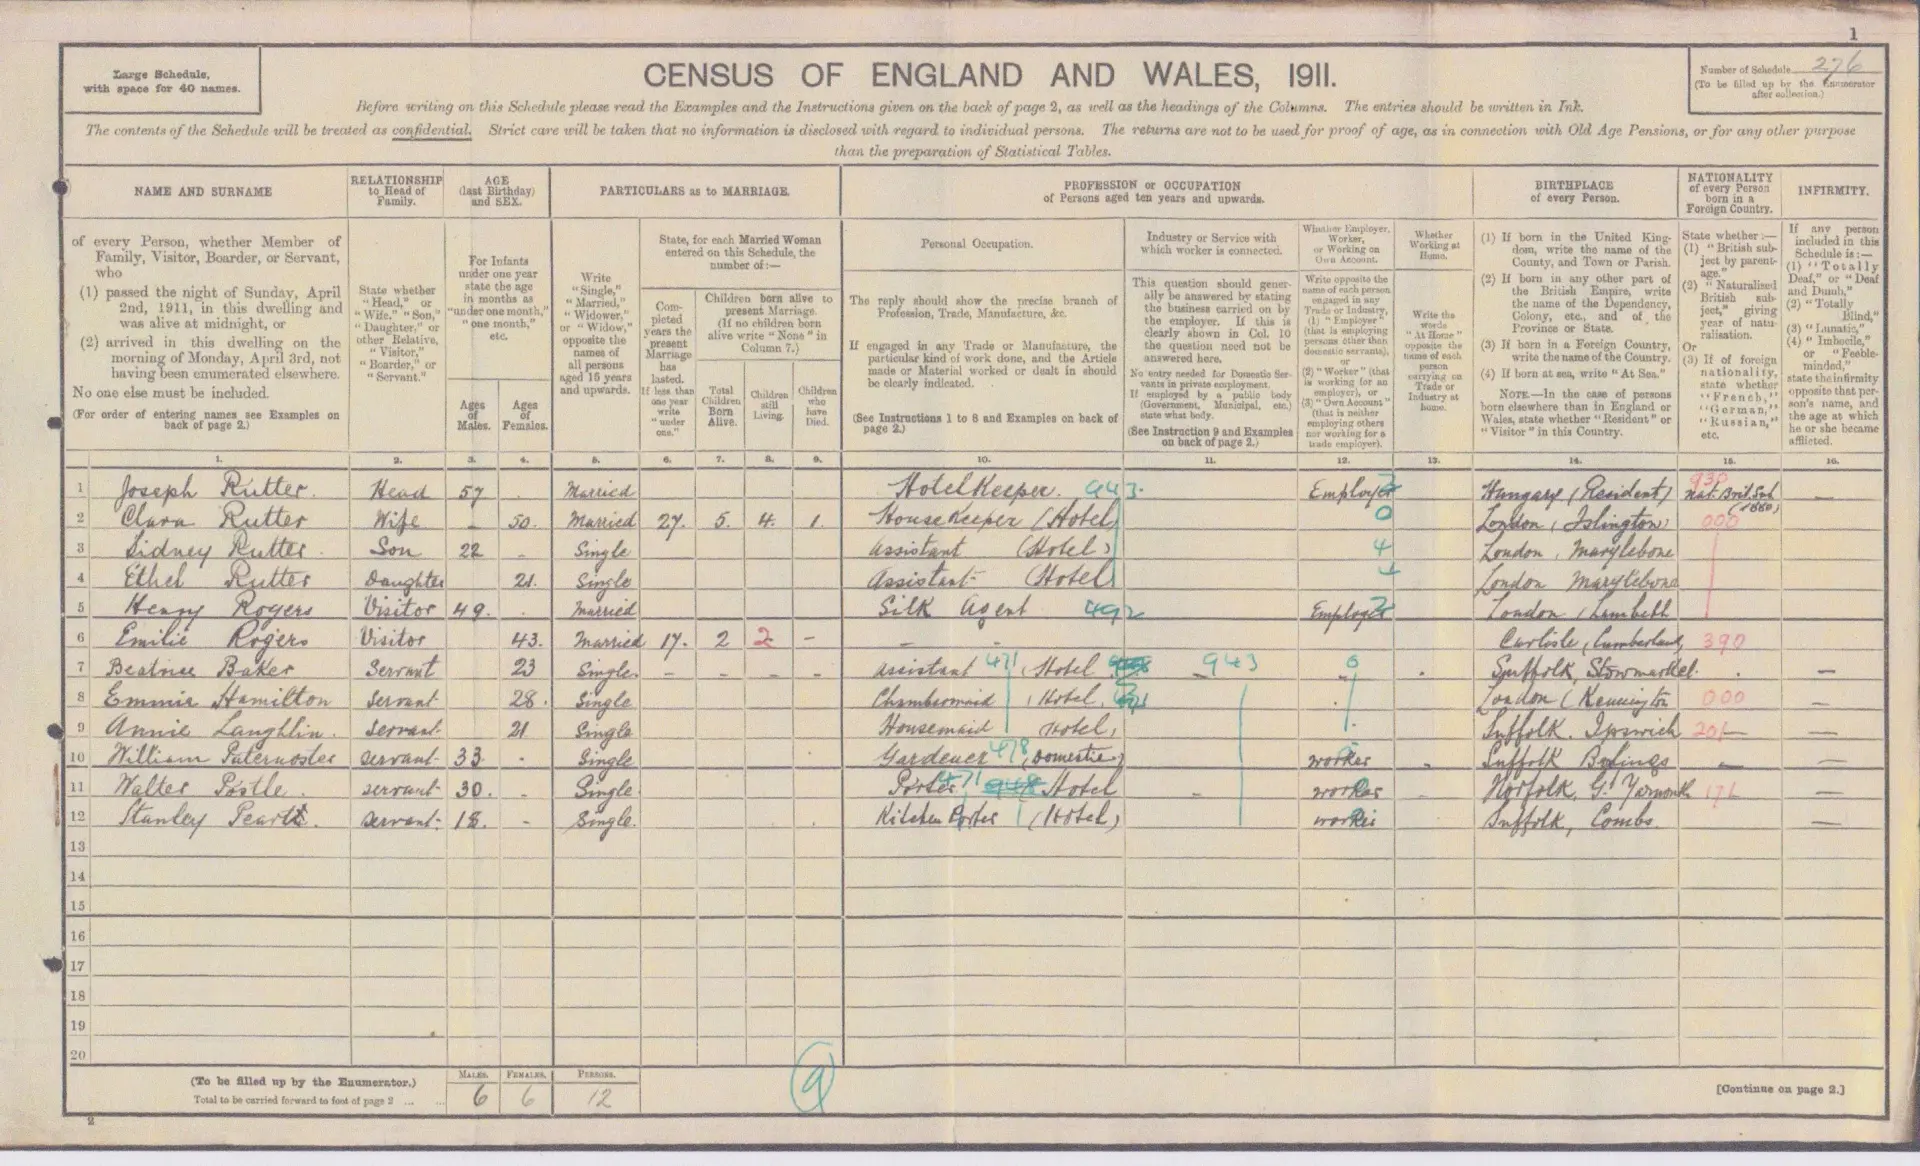 1
Large Schedule,
with space for 40 names.
CENSUS OF ENGLAND AND WALES, 1911.
Number of Schedule 276
(To be filled up by the Enumerator
after collection.)
Before writing on this Schedule please read the Examples and the Instructions given on the back of page 2, as well as the headings of the Columns. The entries should be written in Ink.
The contents of the Schedule will be treated as confidential. Strict care will be taken that no information is disclosed with regard to individual persons. The returns are not to be used for proof of age, as in connection with Old Age Pensions, or for any other purpose
than the preparation of Statistical Tables.
NAME AND SURNAME
RELATIONSHIP
to Head of
Family.
AGE
(last Birthday)
and SEX.
PARTICULARS as to MARRIAGE.
PROFESSION or OCCUPATION
of Persons aged ten years and upwards.
BIRTHPLACE
of every Person.
NATIONALITY
of every Person
born in a
Foreign Country.
INFIRMITY.
of every Person, whether Member of
Family, Visitor, Boarder, or Servant,
who
(1) passed the night of Sunday, April
2nd, 1911, in this dwelling and
was alive at midnight, or
(2) arrived in this dwelling on the
morning of Monday, April 3rd, not
having been enumerated elsewhere.
No one else must be included.
(For order of entering names see Examples on
back of page 2.)
State whether
"Head," or
"Wife," "Son,"
"Daughter," or
other Relative,
"Visitor,"
"Boarder," or
"Servant."
For Infants
under one year
state the age
in months as
"under one month,"
"one month,"
etc.
Ages
of
Males.
Ages
of
Females.
Write
"Single,"
"Married,"
"Widower,"
or "Widow,"
opposite the
names of
all persons
aged 15 years
and upwards.
State, for each Married Woman
entered on this Schedule, the
number of:—
Com-
pleted
years the
present
Marriage
has
lasted.
If less than
one year
write
"under
one."
Children born alive to
present Marriage.
(If no children born
alive write "None" in
Column 7.)
Total
Children
Born
Alive.
Children
still
Living.
Children
who
have
Died.
Personal Occupation.
The reply should show the precise branch of
Profession, Trade, Manufacture, &c.
If engaged in any Trade or Manufacture, the
particular kind of work done, and the Article
made or Material worked or dealt in should
be clearly indicated.
(See Instructions 1 to 8 and Examples on back of
page 2.)
Industry or Service with
which worker is connected.
This question should gener-
ally be answered by stating
the business carried on by
the employer. If this is
clearly shown in Col. 10
the question need not be
answered here.
No entry needed for Domestic Ser-
vants in private employment.
If employed by a public body
(Government, Municipal, etc.)
state what body.
(See Instruction 9 and Examples
on back of page 2.)
Whether Employer,
Worker,
or Working on
Own Account.
Write opposite the
name of each person
engaged in any
Trade or Industry,
(1) "Employer"
(that is employing
persons other than
domestic servants),
or
(2) "Worker" (that
is working for an
employer), or
(3) "Own Account"
(that is neither
employing others
nor working for a
trade employer).
Whether
Working at
Home.
Write the
words
"At Home"
opposite the
name of each
person
carrying on
Trade or
Industry at
home.
(1) If born in the United King-
dom, write the name of the
County, and Town or Parish.
(2) If born in any other part of
the British Empire, write
the name of the Dependency,
Colony, etc., and of the
Province or State.
(3) If born in a Foreign Country,
write the name of the Country.
(4) If born at sea, write "At Sea."
NOTE.—In the case of persons
born elsewhere than in England or
Wales, state whether "Resident" or
"Visitor" in this Country.
State whether:—
(1) "British sub-
ject by parent-
age."
(2) "Naturalised
British sub-
ject," giving
year of natu-
ralisation.
Or
(3) If of foreign
nationality,
state whether
"French,"
"German,"
"Russian,"
etc.
If any person
included in this
Schedule is:—
(1) "Totally
Deaf," or "Deaf
and Dumb,"
(2) "Totally
Blind,"
(3) "Lunatic,"
(4) "Imbecile,"
or "Feeble-
minded,"
state the infirmity
opposite that per-
son's name, and
the age at which
he or she became
afflicted.
1. 2. 3. 4. 5. 6. 7. 8. 9. 10. 11. 12. 13. 14. 15. 16.
1 Joseph Rutter. Head 57 Married Hotel Keeper. 943. Employer Hungary (Resident) 930 Nat. Brit. Sub (1880) —
2 Clara Rutter Wife — 50. Married 27. 5. 4. 1. House Keeper (Hotel) 0 London (Islington) 000
3 Sidney Rutter. Son 22 - Single Assistant (Hotel) 4 London, Marylebone
4 Ethel Rutter Daughter 21. Single Assistant (Hotel) 4 London Marylebone
5 Henry Rogers Visitor 49. Married Silk Agent 492 Employer London (Lambeth
6 Emilie Rogers Visitor 43. Married 17. 2 2 - - - Carlisle, Cumberland, 390
7 Beatrice Baker Servant 23 Single. - - - - Assistant 471 (Hotel 943 6 Suffolk, Stowmarket. —
8 Emmie Hamilton Servant 28. Single Chambermaid (Hotel, London (Kennington 000 —
9 Annie Laughlin. Servant 21 Single Housemaid Hotel, Suffolk. Ipswich 201 —
10 William Paternoster servant 33 - Single Gardener 478 (Domestic) worker Suffolk — —
11 Walter Postle. servant 30. - Single Porter 471 Hotel - worker Norfolk, Gt Yarmouth 176 —
12 Stanley servant. 18. - Single. Kitchen Porter (Hotel) worker Suffolk, Combs. —
13
14
15
16
17
18
19
20
(To be filled up by the Enumerator.)
Total to be carried forward to foot of page 2 ... ...
MALES. FEMALES. PERSONS.
6 6 12
9
[Continue on page 2.]
2